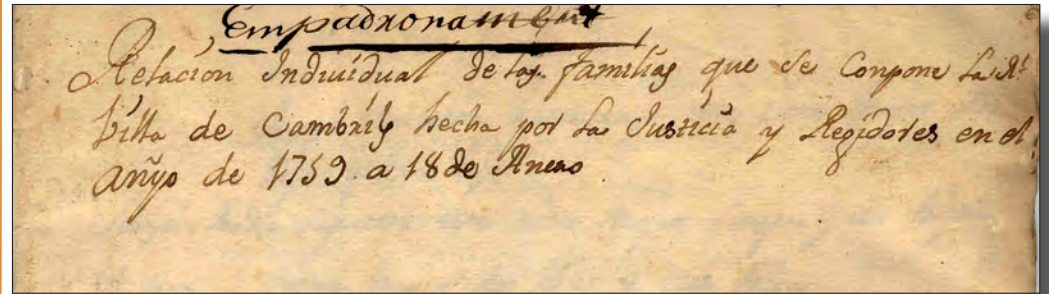 Empadronament
Relacion Individual de las familias que se Conpone la Rl
Villa de Cambrils hecha por las Justicia y Regidores en el
añyo de 1759 a 18 de Anero